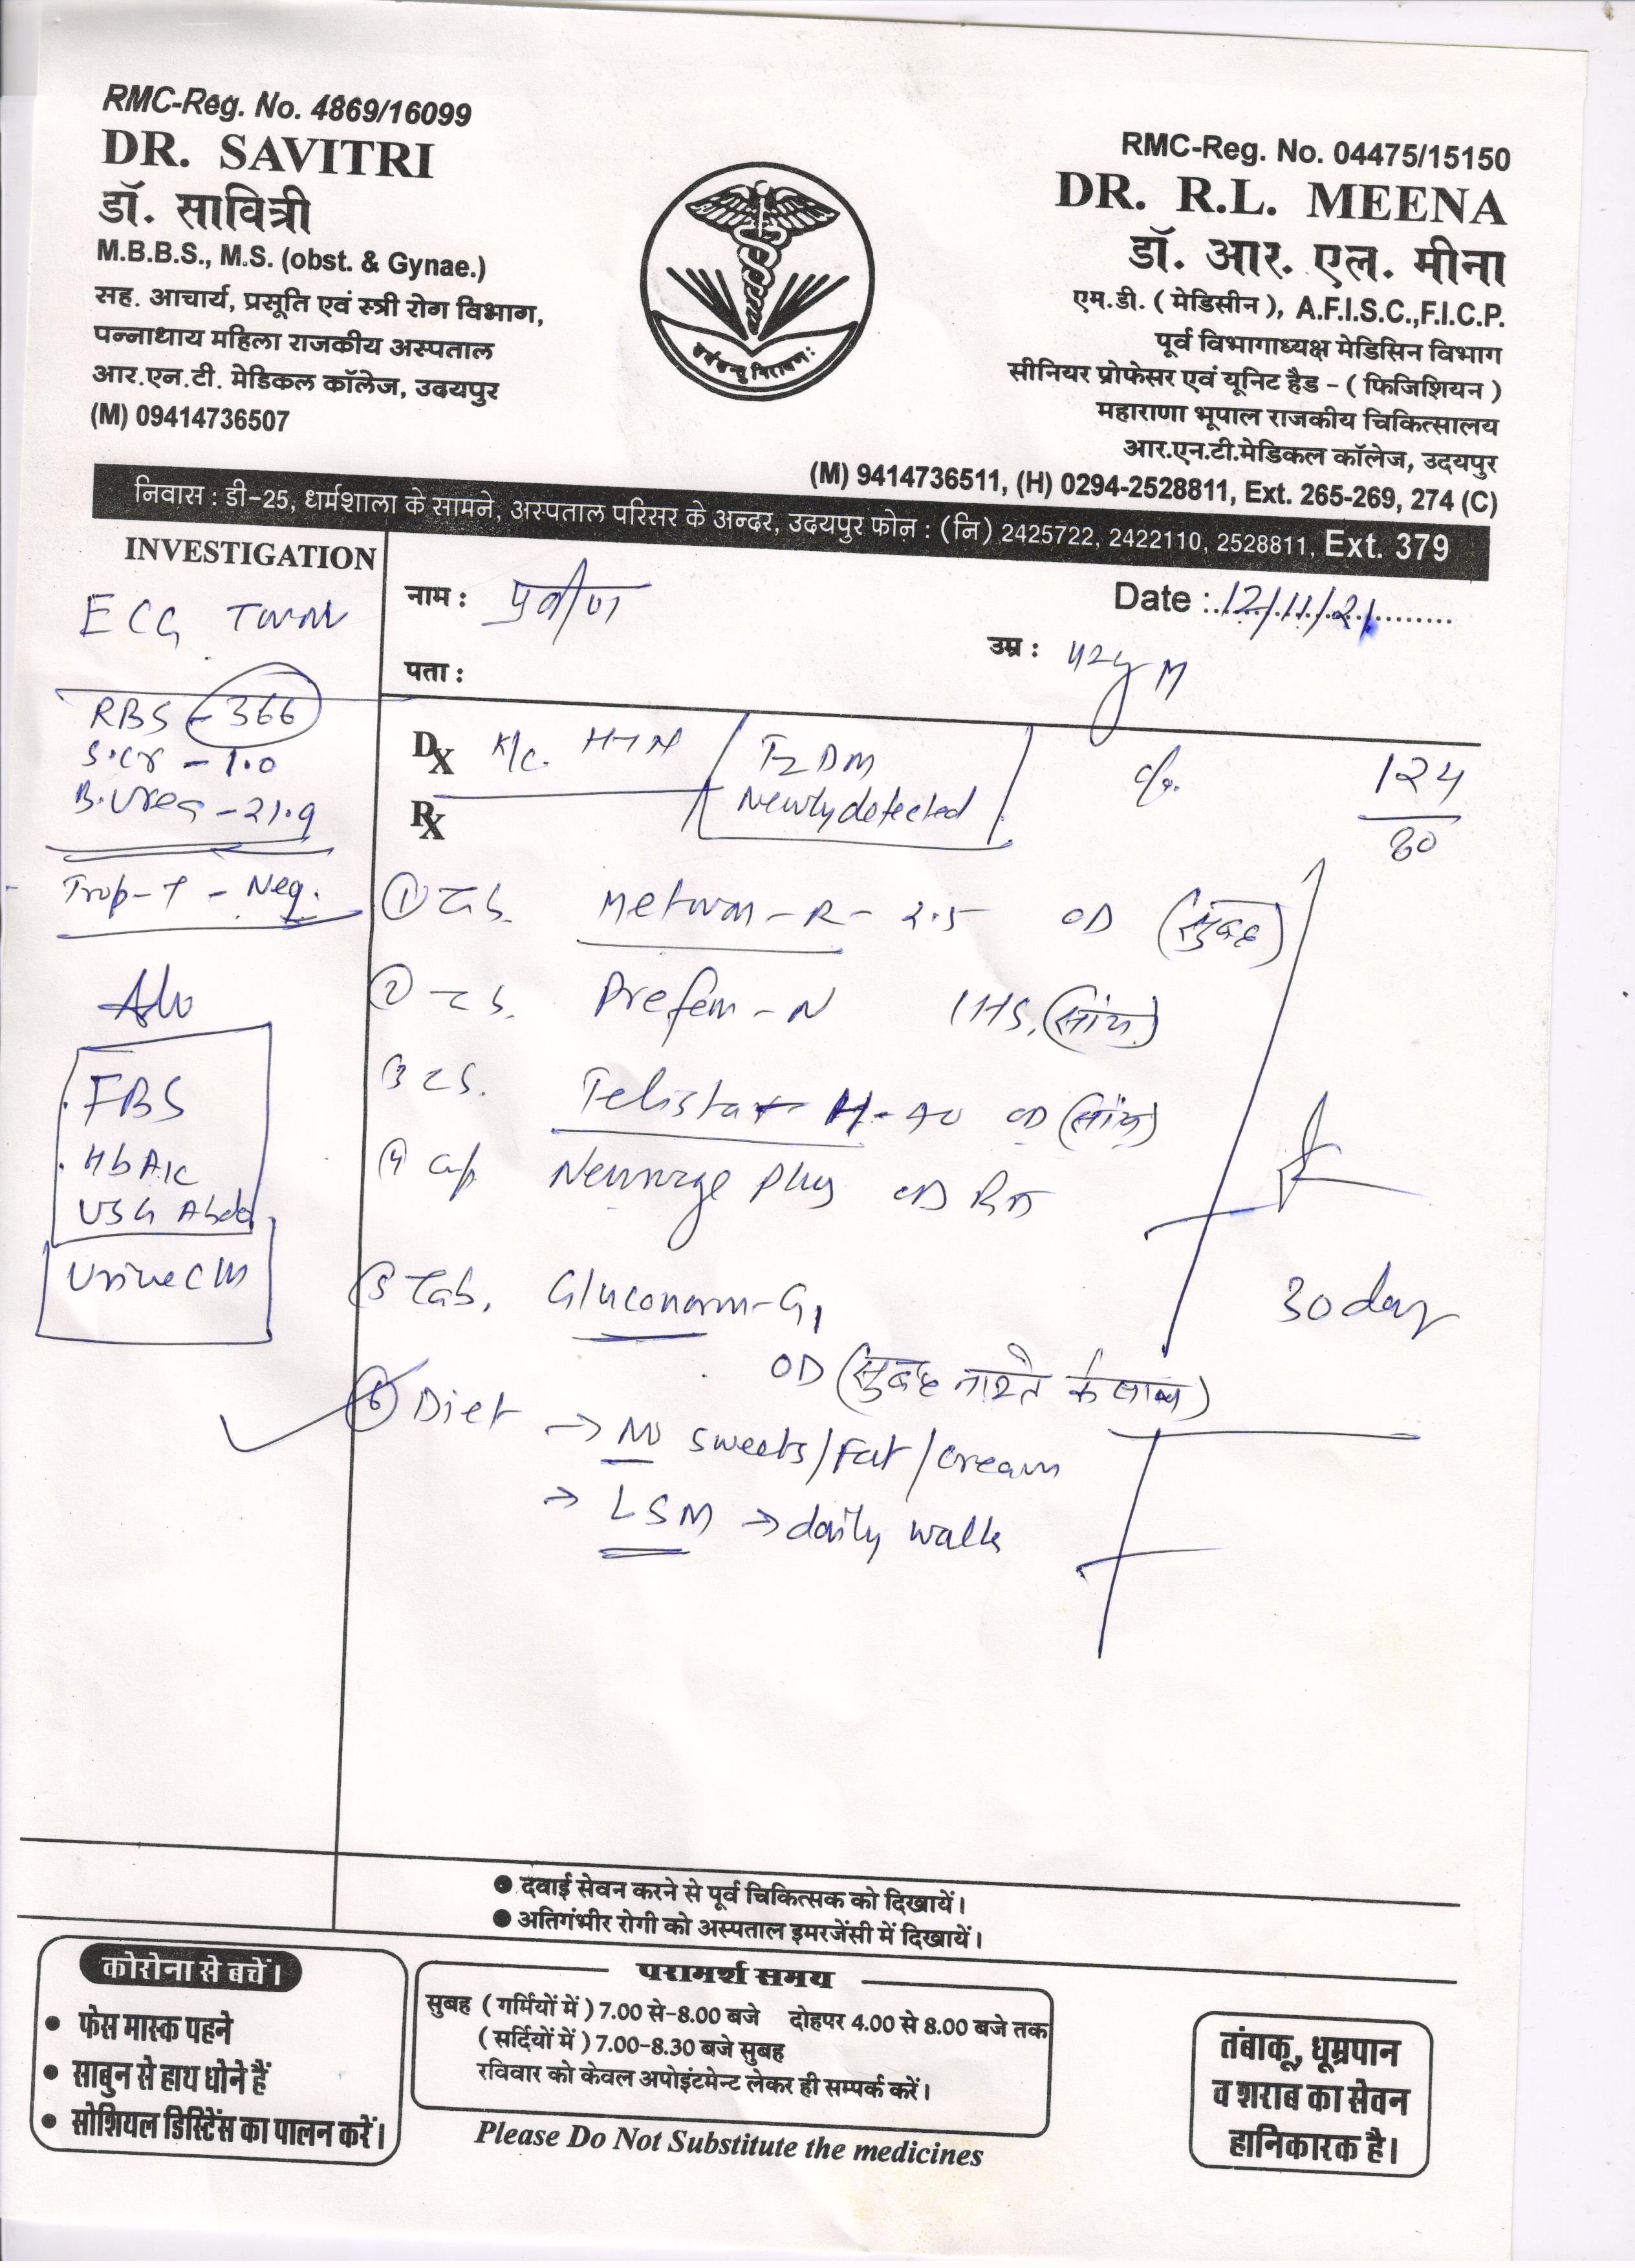 RMC-Reg. No. 4869/16099
DR. SAVITRI
डॉ. सावित्री
M.B.B.S., M.S. (obst. & Gynae.)
सह. आचार्य, प्रसूति एवं स्त्री रोग विभाग,
पन्नाधाय महिला राजकीय अस्पताल
आर.एन.टी. मेडिकल कॉलेज, उदयपुर
(M) 09414736507
RMC-Reg. No. 04475/15150
DR. R.L. MEENA
डॉ. आर. एल. मीना
एम.डी. ( मेडिसीन ), A.F.I.S.C.,F.I.C.P.
पूर्व विभागाध्यक्ष मेडिसिन विभाग
सीनियर प्रोफेसर एवं यूनिट हैड - ( फिजिशियन )
महाराणा भूपाल राजकीय चिकित्सालय
आर.एन.टी.मेडिकल कॉलेज, उदयपुर
(M) 9414736511, (H) 0294-2528811, Ext. 265-269, 274 (C)
निवास : डी-25, धर्मशाला के सामने, अस्पताल परिसर के अन्दर, उदयपुर फोन : (नि) 2425722, 2422110, 2528811, Ext. 379
INVESTIGATION
ECG
RBS - 366
S.Cr - 1.0
B.Urea - 21.9
Trop-T - Neg.
FBS
HbA1c
USG Abdo
Urine C/M
नाम : प्रवीण
Date : 12/11/21
पता :
उम्र : 42y M
Dx K/C. HTN / T2DM
Newly detected
124
80
Rx
① Tab. R - 2.5 OD (सुबह)
② Tab. - N 1 HS (सांय)
③ Tab. Telista H-40 OD (सांय)
④ Cap Plus OD
⑤ Tab. Gluconorm-G1
OD (सुबह नाश्ते के साथ)
30 day
⑥ Diet → No sweets/Fat/cream
→ LSM → daily walk
● दवाई सेवन करने से पूर्व चिकित्सक को दिखायें।
● अतिगंभीर रोगी को अस्पताल इमरजेंसी में दिखायें।
कोरोना से बचें।
● फेस मास्क पहने
● साबुन से हाथ धोने हैं
● सोशियल डिस्टिेंस का पालन करें।
परामर्श समय
सुबह ( गर्मियों में ) 7.00 से-8.00 बजे दोहपर 4.00 से 8.00 बजे तक
( सर्दियों में ) 7.00-8.30 बजे सुबह
रविवार को केवल अपोइंटमेन्ट लेकर ही सम्पर्क करें।
Please Do Not Substitute the medicines
तंबाकू, धूम्रपान
व शराब का सेवन
हानिकारक है।